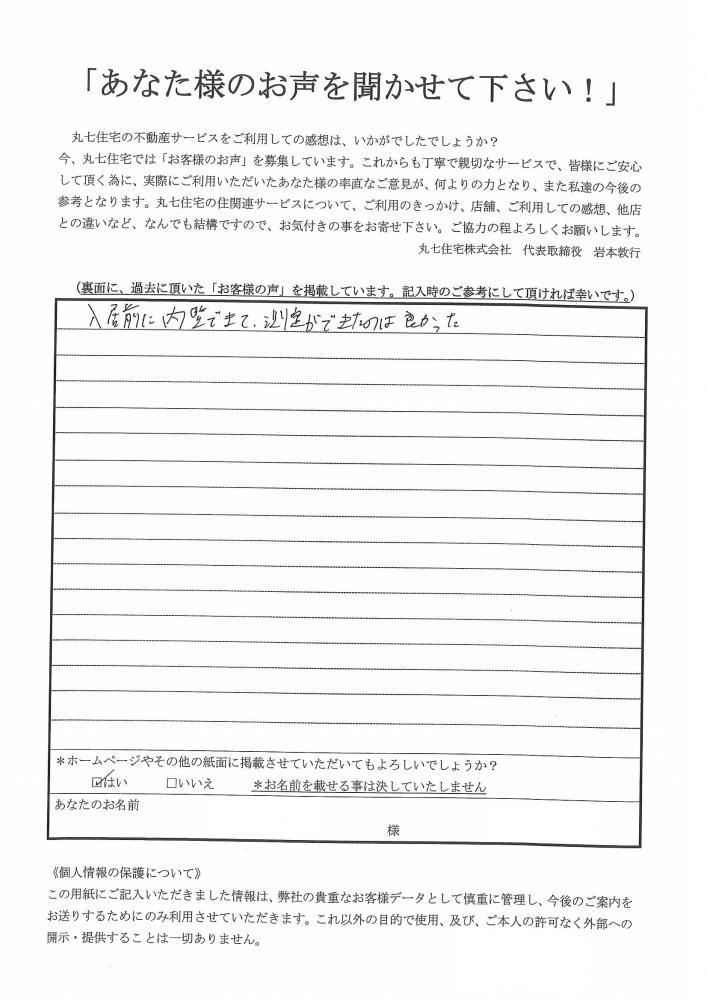 「あなた様のお声を聞かせて下さい！」
丸七住宅の不動産サービスをご利用しての感想は、いかがでしたでしょうか？
今、丸七住宅では「お客様のお声」を募集しています。これからも丁寧で親切なサービスで、皆様にご安心
して頂く為に、実際にご利用いただいたあなた様の率直なご意見が、何よりの力となり、また私達の今後の
参考となります。丸七住宅の住関連サービスについて、ご利用のきっかけ、店舗、ご利用しての感想、他店
との違いなど、なんでも結構ですので、お気付きの事をお寄せ下さい。ご協力の程よろしくお願いします。
丸七住宅株式会社　代表取締役　岩本敦行
（裏面に、過去に頂いた「お客様の声」を掲載しています。記入時のご参考にして頂ければ幸いです。）
入居前に内覧できて、測定ができたのは良かった
＊ホームページやその他の紙面に掲載させていただいてもよろしいでしょうか？
☑はい　□いいえ　＊お名前を載せる事は決していたしません
あなたのお名前
様
《個人情報の保護について》
この用紙にご記入いただきました情報は、弊社の貴重なお客様データとして慎重に管理し、今後のご案内を
お送りするためにのみ利用させていただきます。これ以外の目的で使用、及び、ご本人の許可なく外部への
開示・提供することは一切ありません。